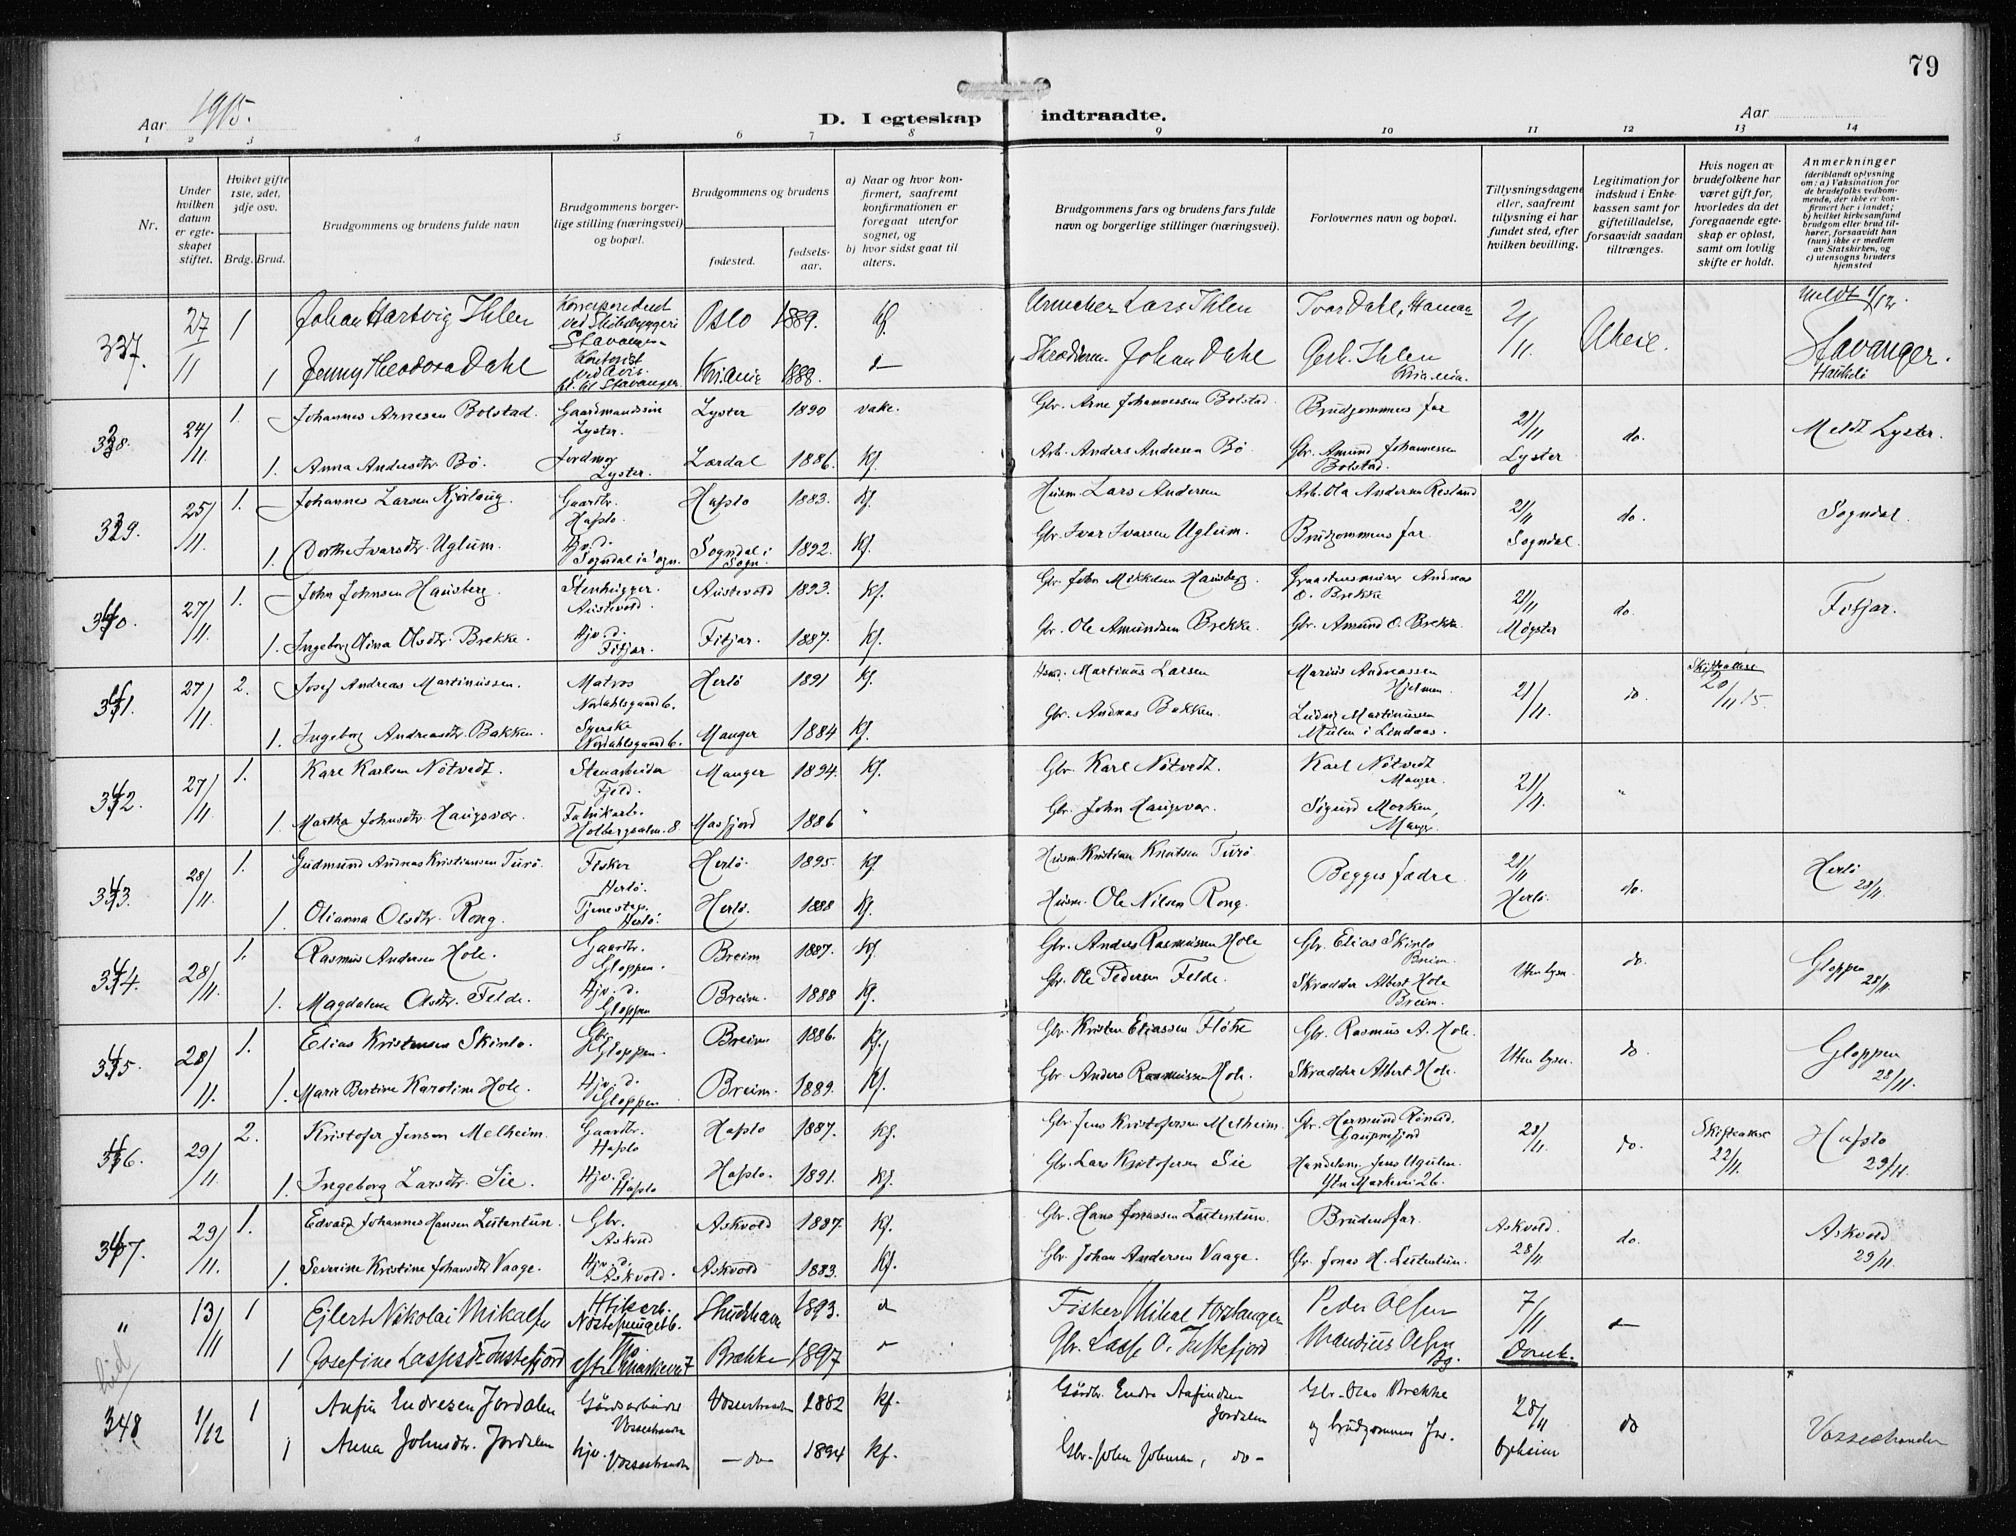 79
Aar 1915. D. I egteskap indtraadte. Aar
1 2 3 4 5 6 7 8 9 10 11 12 13 14
Nr.
Under hvilken datum er egteskapet stiftet.
Hviket gifte 1ste, 2det, 3dje osv.
Brdg. Brud.
Brudgommens og brudens fulde navn
Brudgommens borgerlige stilling (næringsvei) og bopæl.
Brudgommens og brudens
fødested. fødselsaar.
a) Naar og hvor konfirmert, saafremt konfirmationen er foregaat utenfor sognet, og
b) hvor sidst gaat til alters.
Brudgommens fars og brudens fars fulde navn og borgerlige stillinger (næringsvei).
Forlovernes navn og bopæl.
Tillysningsdagene eller, saafremt tillysning ei har fundet sted, efter hvilken bevilling.
Legitimation for indskud i Enkekassen samt for giftetilladelse, forsaavidt saadan tiltrænges.
Hvis nogen av brudefolkene har været gift før, hvorledes da det foregaaende egteskap er opløst, samt om lovlig skifte er holdt.
Anmerkninger
(deriblandt oplysning om: a) Vaksination for de brudefolks vedkommende, der ikke er konfirmert her i landet; b) hvilket kirkesamfund brudgom eller brud tilhører, forsaavidt han (hun) ikke er medlem av Statskirken, og c) utensogns bruders hjemsted
337. 27/11 1 Johan Hartvig Ihlen Korrespondent ved Skibsbyggeri Stavanger Oslo 1889. Kf Urmaker Lars Ihlen Ivar Dahl, Hamar 21/11 Meldt 1/12.
1 Jenny Theodora Dahl Kontorist ved Avis Stavanger Kr.ania 1888. do Johan Dahl Gerh. Ihlen Kria.nia. Stavanger.
338. 24/11 1. Johannes Arnesen Bolstad. Gaardmandssøn Lyster. Lyster 1890 vake. Gbr. Arne Johannessen Bolstad. Brudgommens far 21/11 Lyster do. Meldt Lyster.
1. Anna Andersdtr. Bø. Jordmor Lyster. Lærdal 1886. Kf. Arb. Anders Andersen Bø Gbr. Amund Johannessen Bolstad.
339. 25/11. 1. Johannes Larsen Kjørlaug. Gaardbr. Hafslo. Hafslo 1883. Kf. Husm. Lars Andersen Arb. Ola Andersen 21/11 Sogndal. do. Sogndal.
1. Dorthe Ivarsdtr. Uglum. Hjv. d. Sogndal i Sogn. Sogndal i Sogn. 1892. Kf. Gbr. Ivar Ivarsen Uglum. Brudgommens far.
340. 27/11. 1. John Johnsen Hausberg. Stenhugger. Austevold. Austevold 1893. Kf. Gbr. John Mikkelsen Hausberg. Graastensmurer Andreas O. Brekke 21/11 Møgster do. Fitjar.
1. Ingeborg Olina Olsdtr. Brekke. Hjv. d. Fitjar. Fitjar. 1887. Kf. Gbr. Ole Amundsen Brekke. Gbr. Amund O. Brekke.
341. 27/11. 2. Josef Andreas Martinussen. Matros Nordahlsgaard 6. Herlö 1891 Kf. Martinus Larsen Marius Andreassen Hjelmen 21/11. do Skifteattest 20/11 15.
1. Ingeborg Andreasdtr. Bakken. Syerske Nordahlsgaard 6. Manger 1884 Kf. Gbr. Andreas Bakken. Ludvig Martinussen Mulen i Lindaas.
342. 27/11. 1. Karl Karlsen Nötvedt. Stenarbeider Fjeld. Manger 1894. Kf. Gbr. Karl Nötvedt. Karl Nötvedt Manger. 21/11. "
1. Martha Johnsdtr. Haugsvær. Fabrikarb. Holbergsalm. 8 Masfjord 1886 " Gbr. John Haugsvær. Sigurd Morken, Manger.
343. 28/11. 1. Gudmund Andreas Kristiansen Turö. Fisker Herlö. Herlö. 1895. Kf. Husm. Kristian Knutsen Turö Begges fædre. 21/11 Herlö. do. Herlö 28/11.
1. Olianna Olsdtr. Rong. Tjenestep. Herlö. Herlö. 1888 Kf. Husm. Ole Nilsen Rong.
344. 28/11. 1. Rasmus Andersen Hole. Gaardbr. Gloppen. Breim 1887. Kf. Gbr. Anders Rasmussen Hole Gbr. Elias Skinlo Breim. Uten lysn. do. Gloppen 28/11.
1. Magdalene Olsdtr. Felde. Hjv. d. Gloppen Breim. 1888 Kf. Gbr. Ole Pedersen Felde. Skrædder Albert Hole Breim.
345. 28/11. 1. Elias Kristensen Skinlo. Gbr. Gloppen. Breim 1886. Kf. Gbr. Kristen Eliassen Flöke Gbr. Rasmus A. Hole. Uten lysn. do. Gloppen 28/11.
1. Marie Bertine Karoline Hole. Hjv. d. Gloppen Breim. 1889. Kf. Gbr. Anders Rasmussen Hole. Skrædder Albert Hole.
346. 29/11. 2. Kristofer Jensen Melheim. Gaardbr. Hafslo Hafslo 1887. Kf. Gbr. Jens Kristofersen Melheim. Gbr. Hermund Rønnei Gaupnefjord 28/11. do. Skifteattest 22/11. Hafslo 29/11.
1. Ingeborg Larsdtr. Sie. Hjv. d. Hafslo Hafslo. 1891. Kf. Gbr. Lars Kristofersen Sie Handelsm. Jens Ugulen. Ytre Markevei 26.
347. 29/11. 1. Edvard Johannes Hansen Lutentun. Gbr. Askvold Askvold 1887. Kf. Gbr. Hans Jonassen Lutentun. Brudens far. Askvold. 28/11 do. Askvold 29/11.
1. Severine Kristine Johansdtr. Vaage. Hjv. d. Askvold. Askvold 1883. Kf. Gbr. Johan Andersen Vaage. Gbr. Jonas H. Lutentun.
" 13/11 1 Ejlert Nikolai Mikalsen Nøstesmuget 6. Skudshavn 1893. do Fisker Mikal Peder Olsen 7/11 Domk.
1 Josefine Lassesdtr. Instefjord ytre Markevei 7 Brække 1897 Gbr. Lasse O. Instefjord Mandius Olsen Bg.
348 1/12 1 Anfin Endresen Jordalen Gårdsarbeider Vossestranden Vossestranden 1882 Kf. Gårdbr. Endre Anfindsen Jordalen Gbr. Olav Brekke og brudgommens far. 28/11 Opheim do Vossestranden
1 Anna Johnsdtr. Jordalen hjv. Vossestranden - do - 1894 Kf. Gbr. John Johnsen, do -